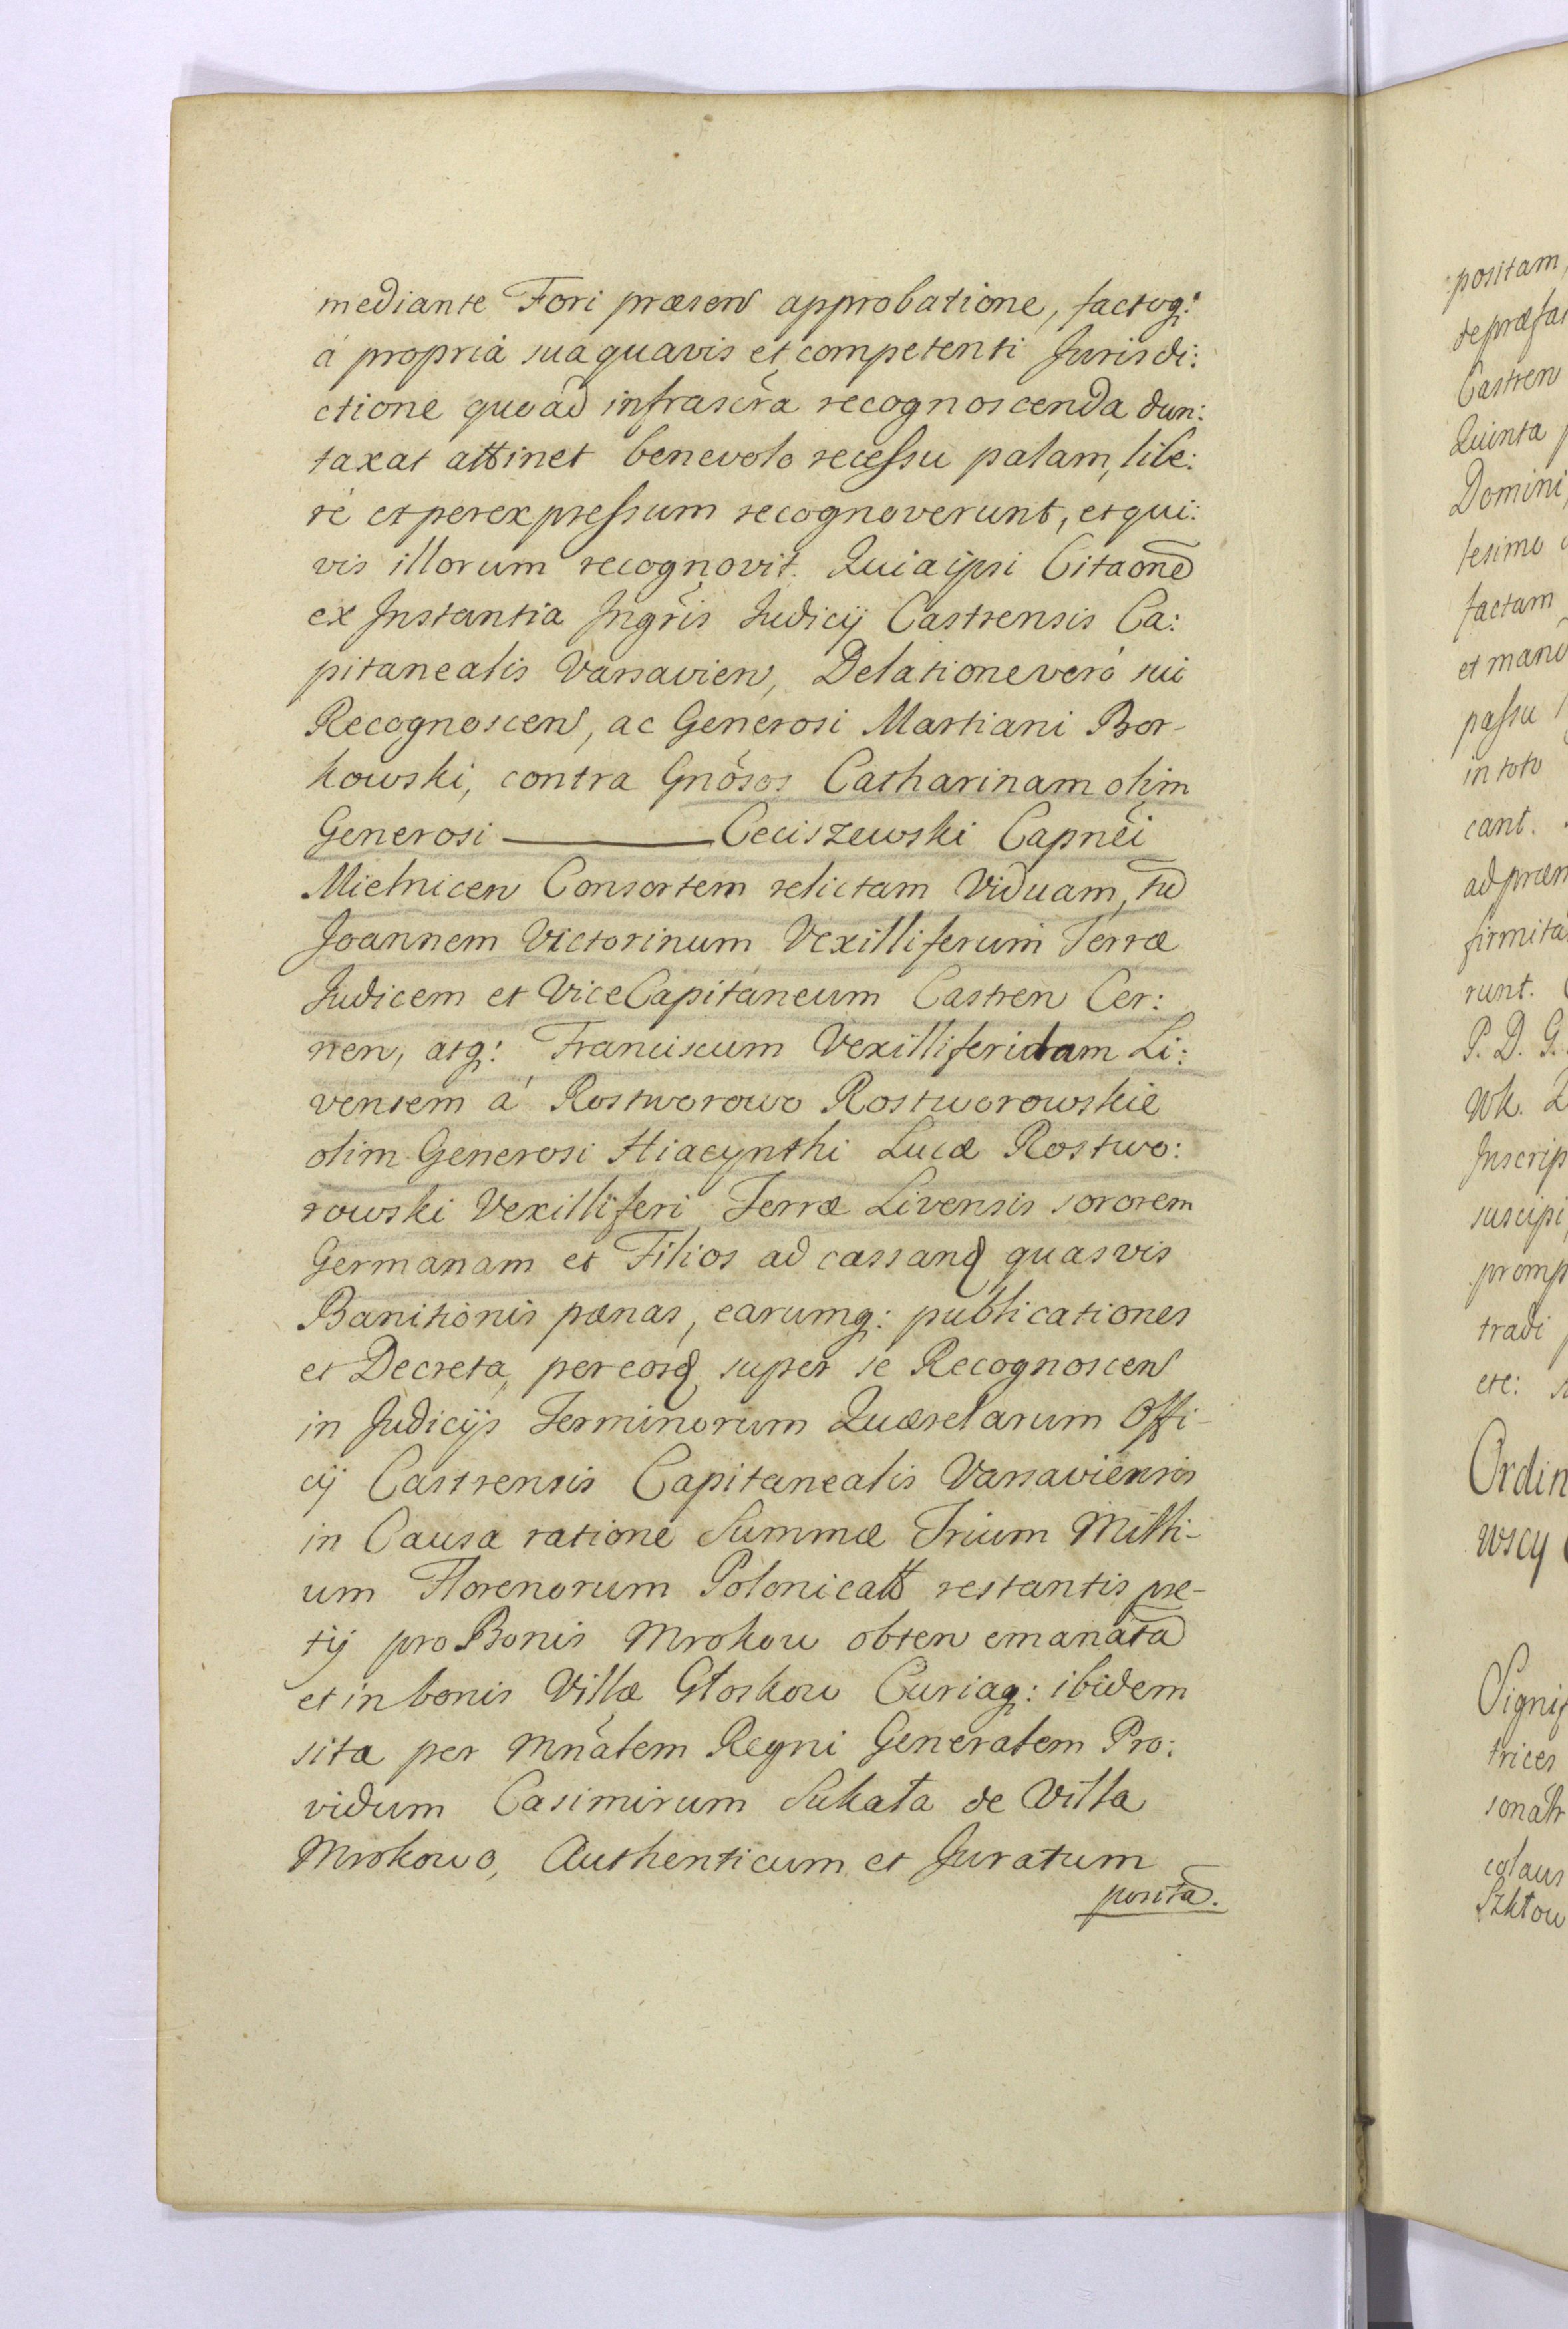 mediante Fori præsen approbatione, factoq:
á propriá suaquavis et competenti Jurisdi:
ctione quoad infrascra recognoscenda dun:
taxat attinet benevolo recessu palam, libe:
ré et perexpressum recognoverunt, et qui:
vis illorum recognovit. Quia ipsi Citaone
ex Instantia Ingris Judicij Castrensis Ca:
pitanealis Varsavien, Delatione veró sui
Recognoscen, ac Generosi Martiani Bor-
kowski, contra Gnosos Catharinam olim
Generosi ——— Ceciszewski Capnei
Mielnicen Consortem relictam Viduam, tu
Joannem Victorinum Vexilliferum Terræ
Judicem et ViceCapitaneum Castren Cer:
nen, atq: Franciscum Vexilliferidam Li:
vensem á Rostworowo Rostworowskie
olim Generosi Hiacynthi Lucæ Rostwo:
rowski Vexilliferi Terræ Livensis sororem
Germanam et Filios ad cassand quasvis
Banitionis pœnas, earumq: publicationes
et Decreta, per eosd super se Recognoscen
in Judicijs Terminorum Quærelarum Offi-
cij Castrensis Capitanealis Varsaviensis
in Causa ratione Summæ Trium Milli-
um Florenorum Polonicall restantis pre-
tij pro Bonis Mrokow obten emanata
et in bonis Villæ Głoskow Curiaq: ibidem
sita per Mnalem Regni Generalem Pro:
vidum Casimirum Sukała de Villa
Mrokowo, Authenticum et Juratum
posita.
positam,
Castren
Quinta
Domini
factam
in toto
cant.
runt.
P. D. G.
Inscrip
suscipi
promp
tradi
etc:
Ordin
wscy
Signif
trices